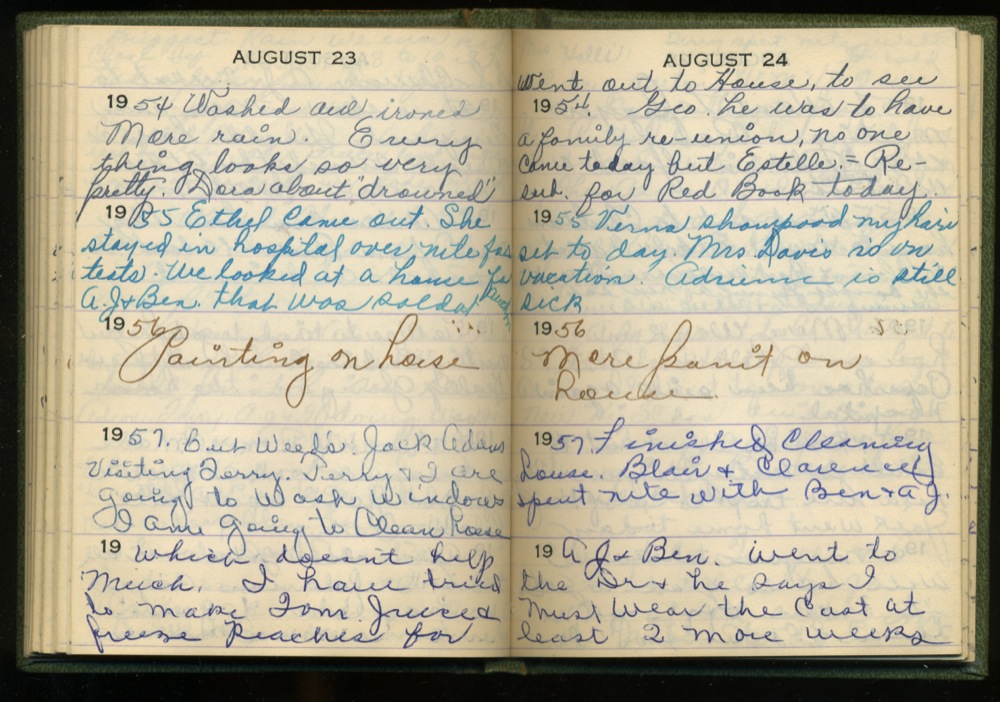 AUGUST 23
1954 Washed and ironed
More rain. Every
thing looks so very
pretty. Dora about "drowned"
1955 Ethel Came out. She
stayed in hospital over nite for
tests. We looked at a home
A.J & Ben. that was sold at
1956
Painting on house
1957. Cut Weeds. Jack Adams
Visiting Terry. Terry & I are
going to Wash Windows
I am going to Clean house
19 which doesnt help
Much. I have tried
to make Tom. Juice &
freeze Peaches for
AUGUST 24
Went out to House, to see
1954. Geo. he was to have
a family re-union, no one
came today but Estelle. = Re-
sub. for Red Book today.
1955 Verna shampood my hair
set to day. Mrs Davis is on
vacation. Adrienne is still
sick
1956
More paint on
house.
1957. Finished Cleaning
house. Blair & Clarence
spent nite with Ben & A J.
19 A J & Ben. went to
the Dr & he says I
Must Wear the Cast at
least 2 More weeks